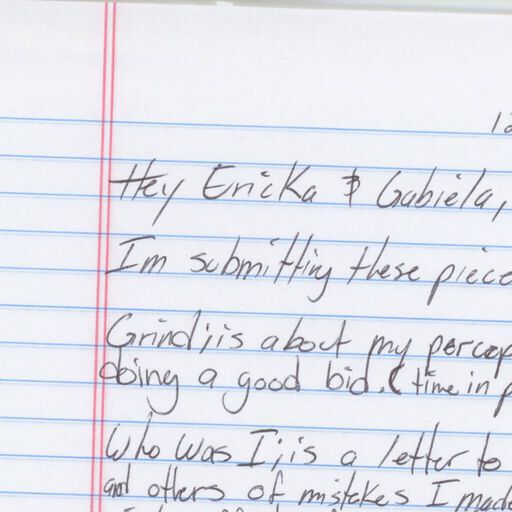 12
Hey Ericka & Gabiela,
Im submitting these piece
Grind;is about my percep
doing a good bid. (time in p
Who Was I;is a letter to
and others of mistakes I made